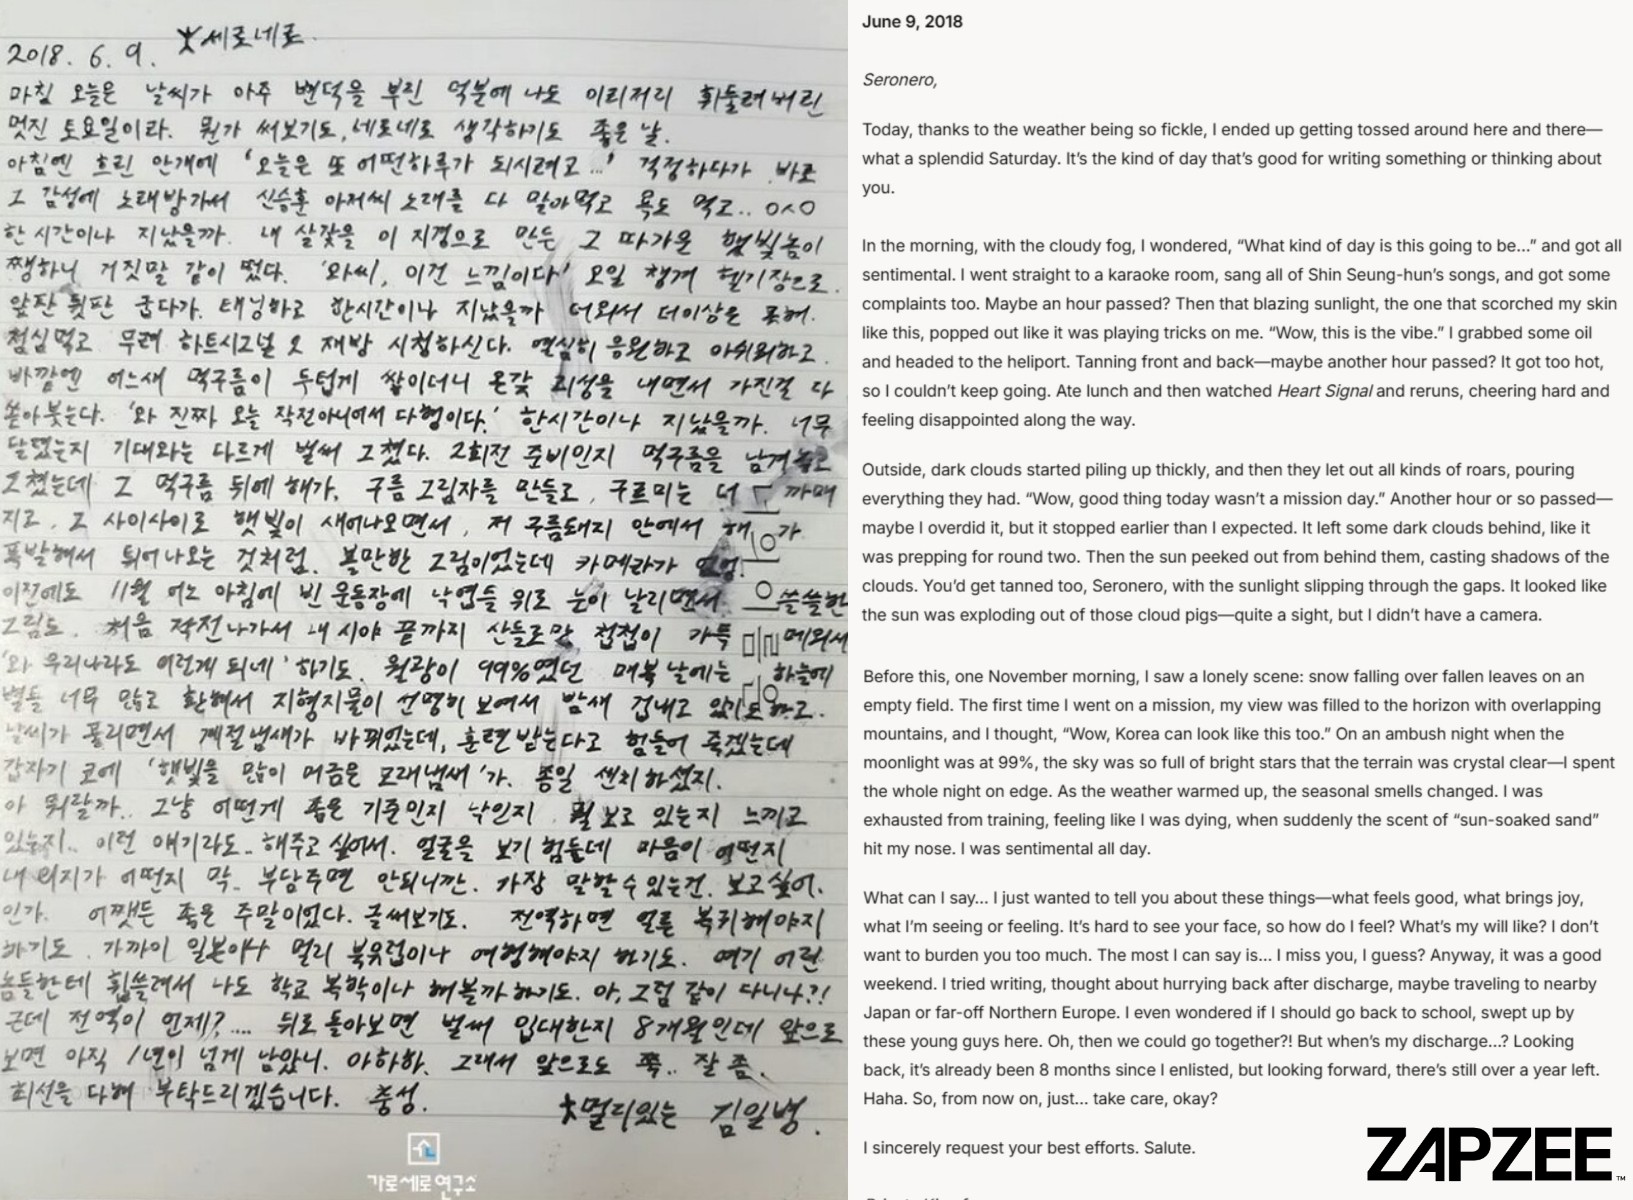 2018. 6. 9. 세로네로.
마침 오늘은 날씨가 아주 변덕을 부린 덕분에 나도 이리저리 휘둘려버린
멋진 토요일이라. 뭔가 써보기도, 네로네로 생각하기도 좋은 날.
아침엔 흐린 안개에 '오늘은 또 어떤하루가 되시려고...' 걱정하다가 바로
그 감성에 노래방가서 신승훈 아저씨 노래를 다 말아먹고 욕도 먹고.. ㅇㅅㅇ
한 시간이나 지났을까. 내 살갗을 이 지경으로 만든 그 따가운 햇빛놈이
쨍하니 거짓말 같이 떴다. '와씨, 이건 느낌이다' 오일 챙겨 헬기장으로.
앞판 뒷판 굽다가. 태닝하고 한시간이나 지났을까 더워서 더이상은 못해.
점심먹고 무려 하트시그널 오 재방 시청하신다. 열심히 응원하고 아쉬워하고.
바깥엔 어느새 먹구름이 두텁게 쌓이더니 온갖 괴성을 내면서 가진걸 다
쏟아붓는다. '와 진짜 오늘 작전아니어서 다행이다.' 한시간이나 지났을까. 너무
달렸는지 기대와는 다르게 벌써 그쳤다. 2회전 준비인지 먹구름을 남겨놓고
그쳤는데 그 먹구름 뒤에 해가, 구름 그림자를 만들고, 구르미는 더 까매
지고, 그 사이사이로 햇빛이 새어나오면서, 저 구름돼지 안에서 해가
폭발해서 튀어나오는 것처럼. 볼만한 그림이었는데 카메라가 없엉!
이전에도 11월 어느 아침에 빈 운동장에 낙엽들 위로 눈이 날리면서 쓸쓸한
그림도. 처음 작전나가서 내 시야 끝까지 산들로만 첩첩이 가득 메워서
'와 우리나라도 이렇게 되네' 하기도. 월광이 99%였던 매복 날에는 하늘에
별들 너무 많고 환해서 지형지물이 선명히 보여서 밤새 겁내고 있기도하고.
날씨가 풀리면서 계절냄새가 바뀌었는데, 훈련받는다고 힘들어 죽겠는데
갑자기 코에 '햇빛을 많이 머금은 모래냄새'가. 종일 센치하셨지.
아 뭐랄까.. 그냥 어떤게 좋은 기준인지 낙인지 뭘 보고 있는지 느끼고
있는지.. 이런 얘기라도.. 해주고 싶어서. 얼굴을 보기 힘들데 마음이 어떤지
내 의지가 어떤지 막.. 부담주면 안되니깐. 가장 말할수있는건. 보고싶어.
인가. 어쨌든 좋은 주말이었다. 글써보기도. 전역하면 얼른 복귀해야지
하기도. 가까이 일본이나 멀리 북유럽이나 여행해야지 하기도. 여기 어린
놈들한테 휩쓸려서 나도 학교 복학이나 해볼까 하기도. 아, 그럼 같이 다니나?!
근데 전역이 언제?.... 뒤로 돌아보면 벌써 입대한지 8개월인데 앞으로
보면 아직 1년이 넘게 남았니. 아하하. 그래서 앞으로도 쭉.. 잘 좀.
최선을 다해 부탁드리겠습니다. 충성.
멀리있는 김일병.
가로세로연구소
June 9, 2018
Seronero,
Today, thanks to the weather being so fickle, I ended up getting tossed around here and there—
what a splendid Saturday. It's the kind of day that's good for writing something or thinking about
you.
In the morning, with the cloudy fog, I wondered, "What kind of day is this going to be..." and got all
sentimental. I went straight to a karaoke room, sang all of Shin Seung-hun's songs, and got some
complaints too. Maybe an hour passed? Then that blazing sunlight, the one that scorched my skin
like this, popped out like it was playing tricks on me. "Wow, this is the vibe." I grabbed some oil
and headed to the heliport. Tanning front and back—maybe another hour passed? It got too hot,
so I couldn't keep going. Ate lunch and then watched Heart Signal and reruns, cheering hard and
feeling disappointed along the way.
Outside, dark clouds started piling up thickly, and then they let out all kinds of roars, pouring
everything they had. "Wow, good thing today wasn't a mission day." Another hour or so passed—
maybe I overdid it, but it stopped earlier than I expected. It left some dark clouds behind, like it
was prepping for round two. Then the sun peeked out from behind them, casting shadows of the
clouds. You'd get tanned too, Seronero, with the sunlight slipping through the gaps. It looked like
the sun was exploding out of those cloud pigs—quite a sight, but I didn't have a camera.
Before this, one November morning, I saw a lonely scene: snow falling over fallen leaves on an
empty field. The first time I went on a mission, my view was filled to the horizon with overlapping
mountains, and I thought, "Wow, Korea can look like this too." On an ambush night when the
moonlight was at 99%, the sky was so full of bright stars that the terrain was crystal clear—I spent
the whole night on edge. As the weather warmed up, the seasonal smells changed. I was
exhausted from training, feeling like I was dying, when suddenly the scent of "sun-soaked sand"
hit my nose. I was sentimental all day.
What can I say... I just wanted to tell you about these things—what feels good, what brings joy,
what I'm seeing or feeling. It's hard to see your face, so how do I feel? What's my will like? I don't
want to burden you too much. The most I can say is... I miss you, I guess? Anyway, it was a good
weekend. I tried writing, thought about hurrying back after discharge, maybe traveling to nearby
Japan or far-off Northern Europe. I even wondered if I should go back to school, swept up by
these young guys here. Oh, then we could go together?! But when's my discharge...? Looking
back, it's already been 8 months since I enlisted, but looking forward, there's still over a year left.
Haha. So, from now on, just... take care, okay?
I sincerely request your best efforts. Salute.
ZAPZEE™